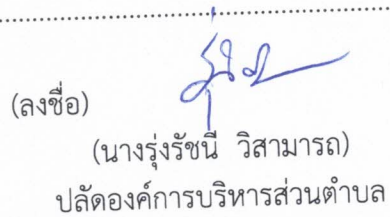 (ลงชื่อ)
(นางรุ่งรัชนี วิสามารถ)
ปลัดองค์การบริหารส่วนตำบล